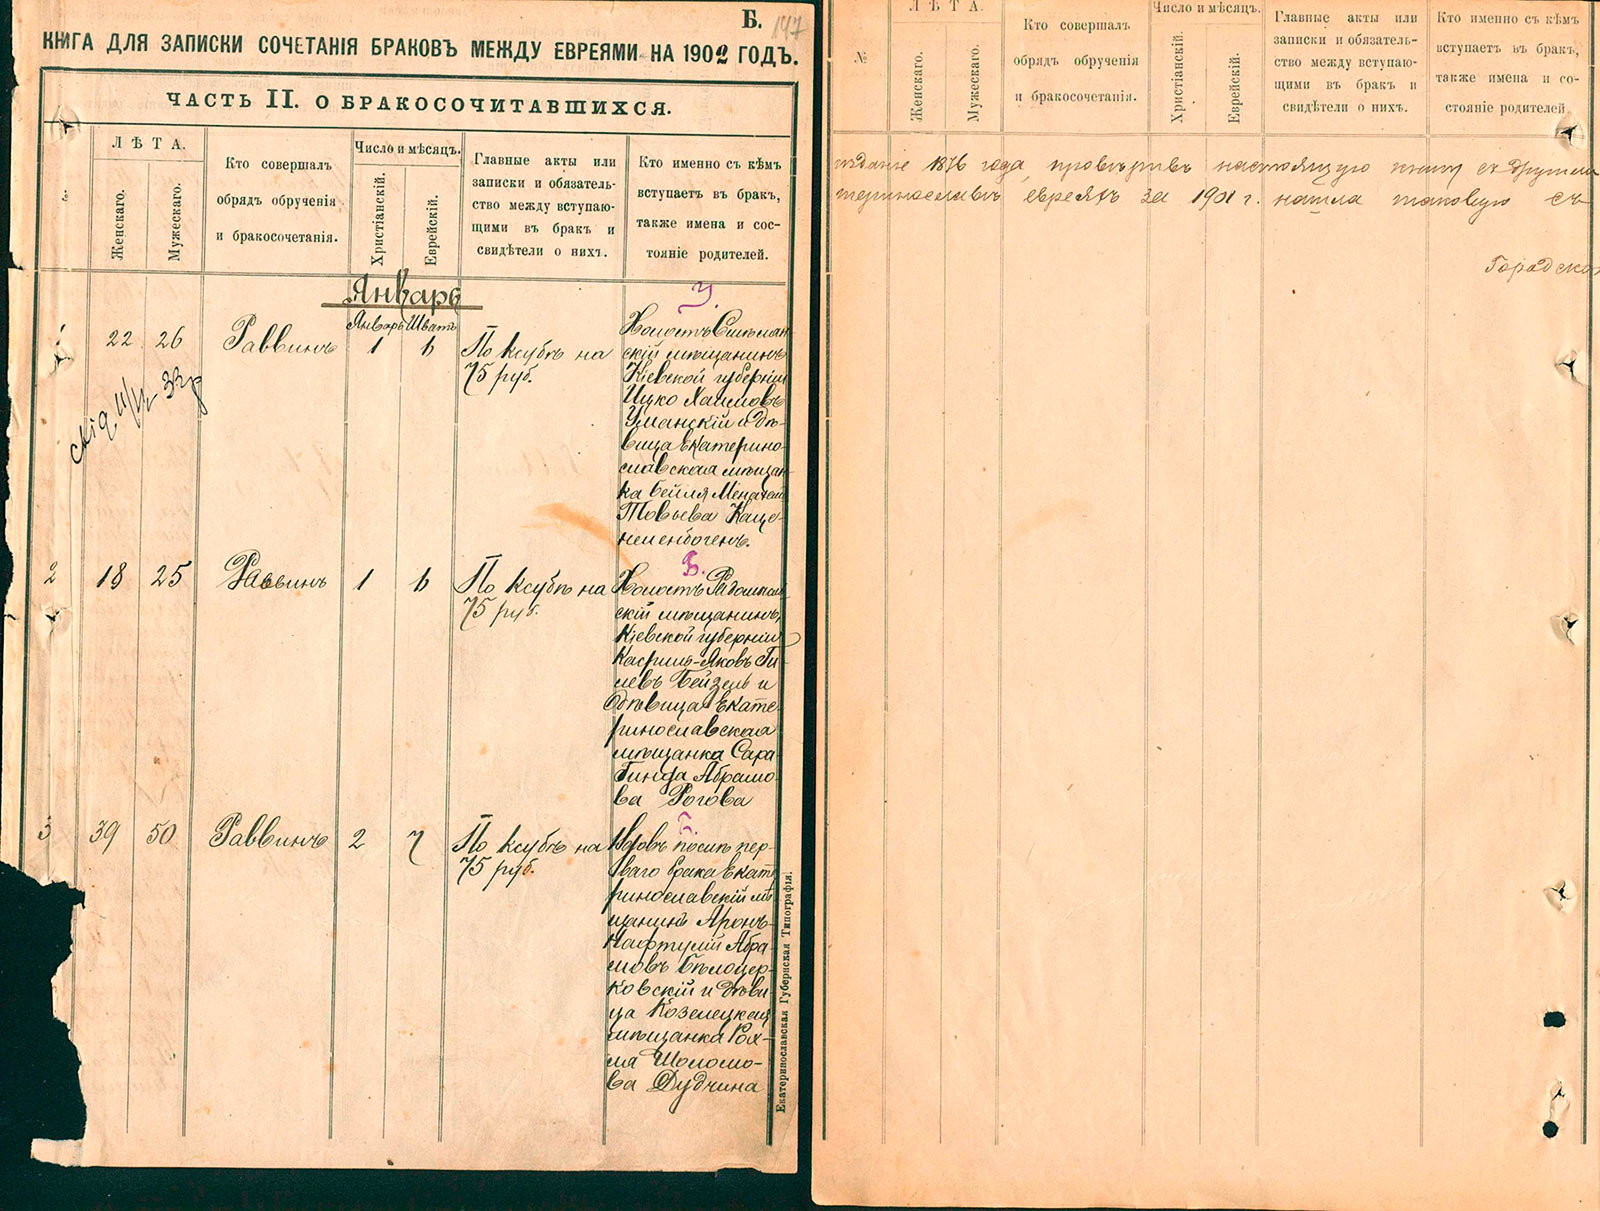 Б.
147
КНИГА ДЛЯ ЗАПИСКИ СОЧЕТАНІЯ БРАКОВЪ МЕЖДУ ЕВРЕЯМИ НА 1902 ГОДЪ.
ЧАСТЬ II. О БРАКОСОЧИТАВШИХСЯ.
ЛѢТА.
Женскаго.
Мужескаго.
Кто совершалъ
обрядъ обрученія
и бракосочетанія.
Число и мѣсяцъ.
Христіанскій.
Еврейскій.
Главные акты или
записки и обязатель-
ство между вступаю-
щими въ бракъ и
свидѣтели о нихъ.
Кто именно съ кѣмъ
вступаетъ въ бракъ,
также имена и сос-
тояніе родителей.
Январь
1
22
26
Раввинъ
Январь
1
Шватъ
6
По ксубѣ на
75 руб.
У.
Холостъ
скій мѣщанинъ
Кіевской губерніи
Ицко Хаимовъ
Уманскій и дѣ-
вица Екатерино-
славская мѣщан-
ка Бейля
Товьева Каце-
неленбогенъ.
2
18
25
Раввинъ
1
6
По ксубѣ на
75 руб.
Б.
Холостъ
скій мѣщанинъ,
Кіевской губерніи
Касриль-Яковъ Ги-
левъ Бейзеръ и
дѣвица Екате-
ринославская
мѣщанка Сара-
Гинда Абрамо-
ва Рогова
3
39
50
Раввинъ
2
7
По ксубѣ на
75 руб.
Б.
Вдовъ послѣ пер-
ваго брака Екате
ринославскій мѣ
щанинъ Аронъ-
Нафтулій Абра-
мовъ Бѣлоцер-
ковскій и дѣви-
ца Козелецкая
мѣщанка Рох-
ля Шоломо-
ва Дудчина
Екатеринославская Губернская Типографія.
№
ЛѢТА.
Женскаго.
Мужескаго.
Кто совершалъ
обрядъ обрученія
и бракосочетанія.
Число и мѣсяцъ.
Христіанскій.
Еврейскій.
Главные акты или
записки и обязатель-
ство между вступаю-
щими въ бракъ и
свидѣтели о нихъ.
Кто именно съ кѣмъ
вступаетъ въ бракъ,
также имена и со-
стояніе родителей
изданіе 1876 года, провѣривъ настоящую книгу съ другими
евреяхъ за 1901 г. нашла таковую съ
Городской